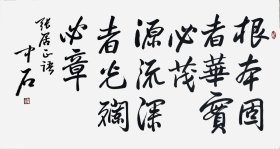 根本固
者華實
必茂
源流深
者光瀾
必章
張居正語
中石